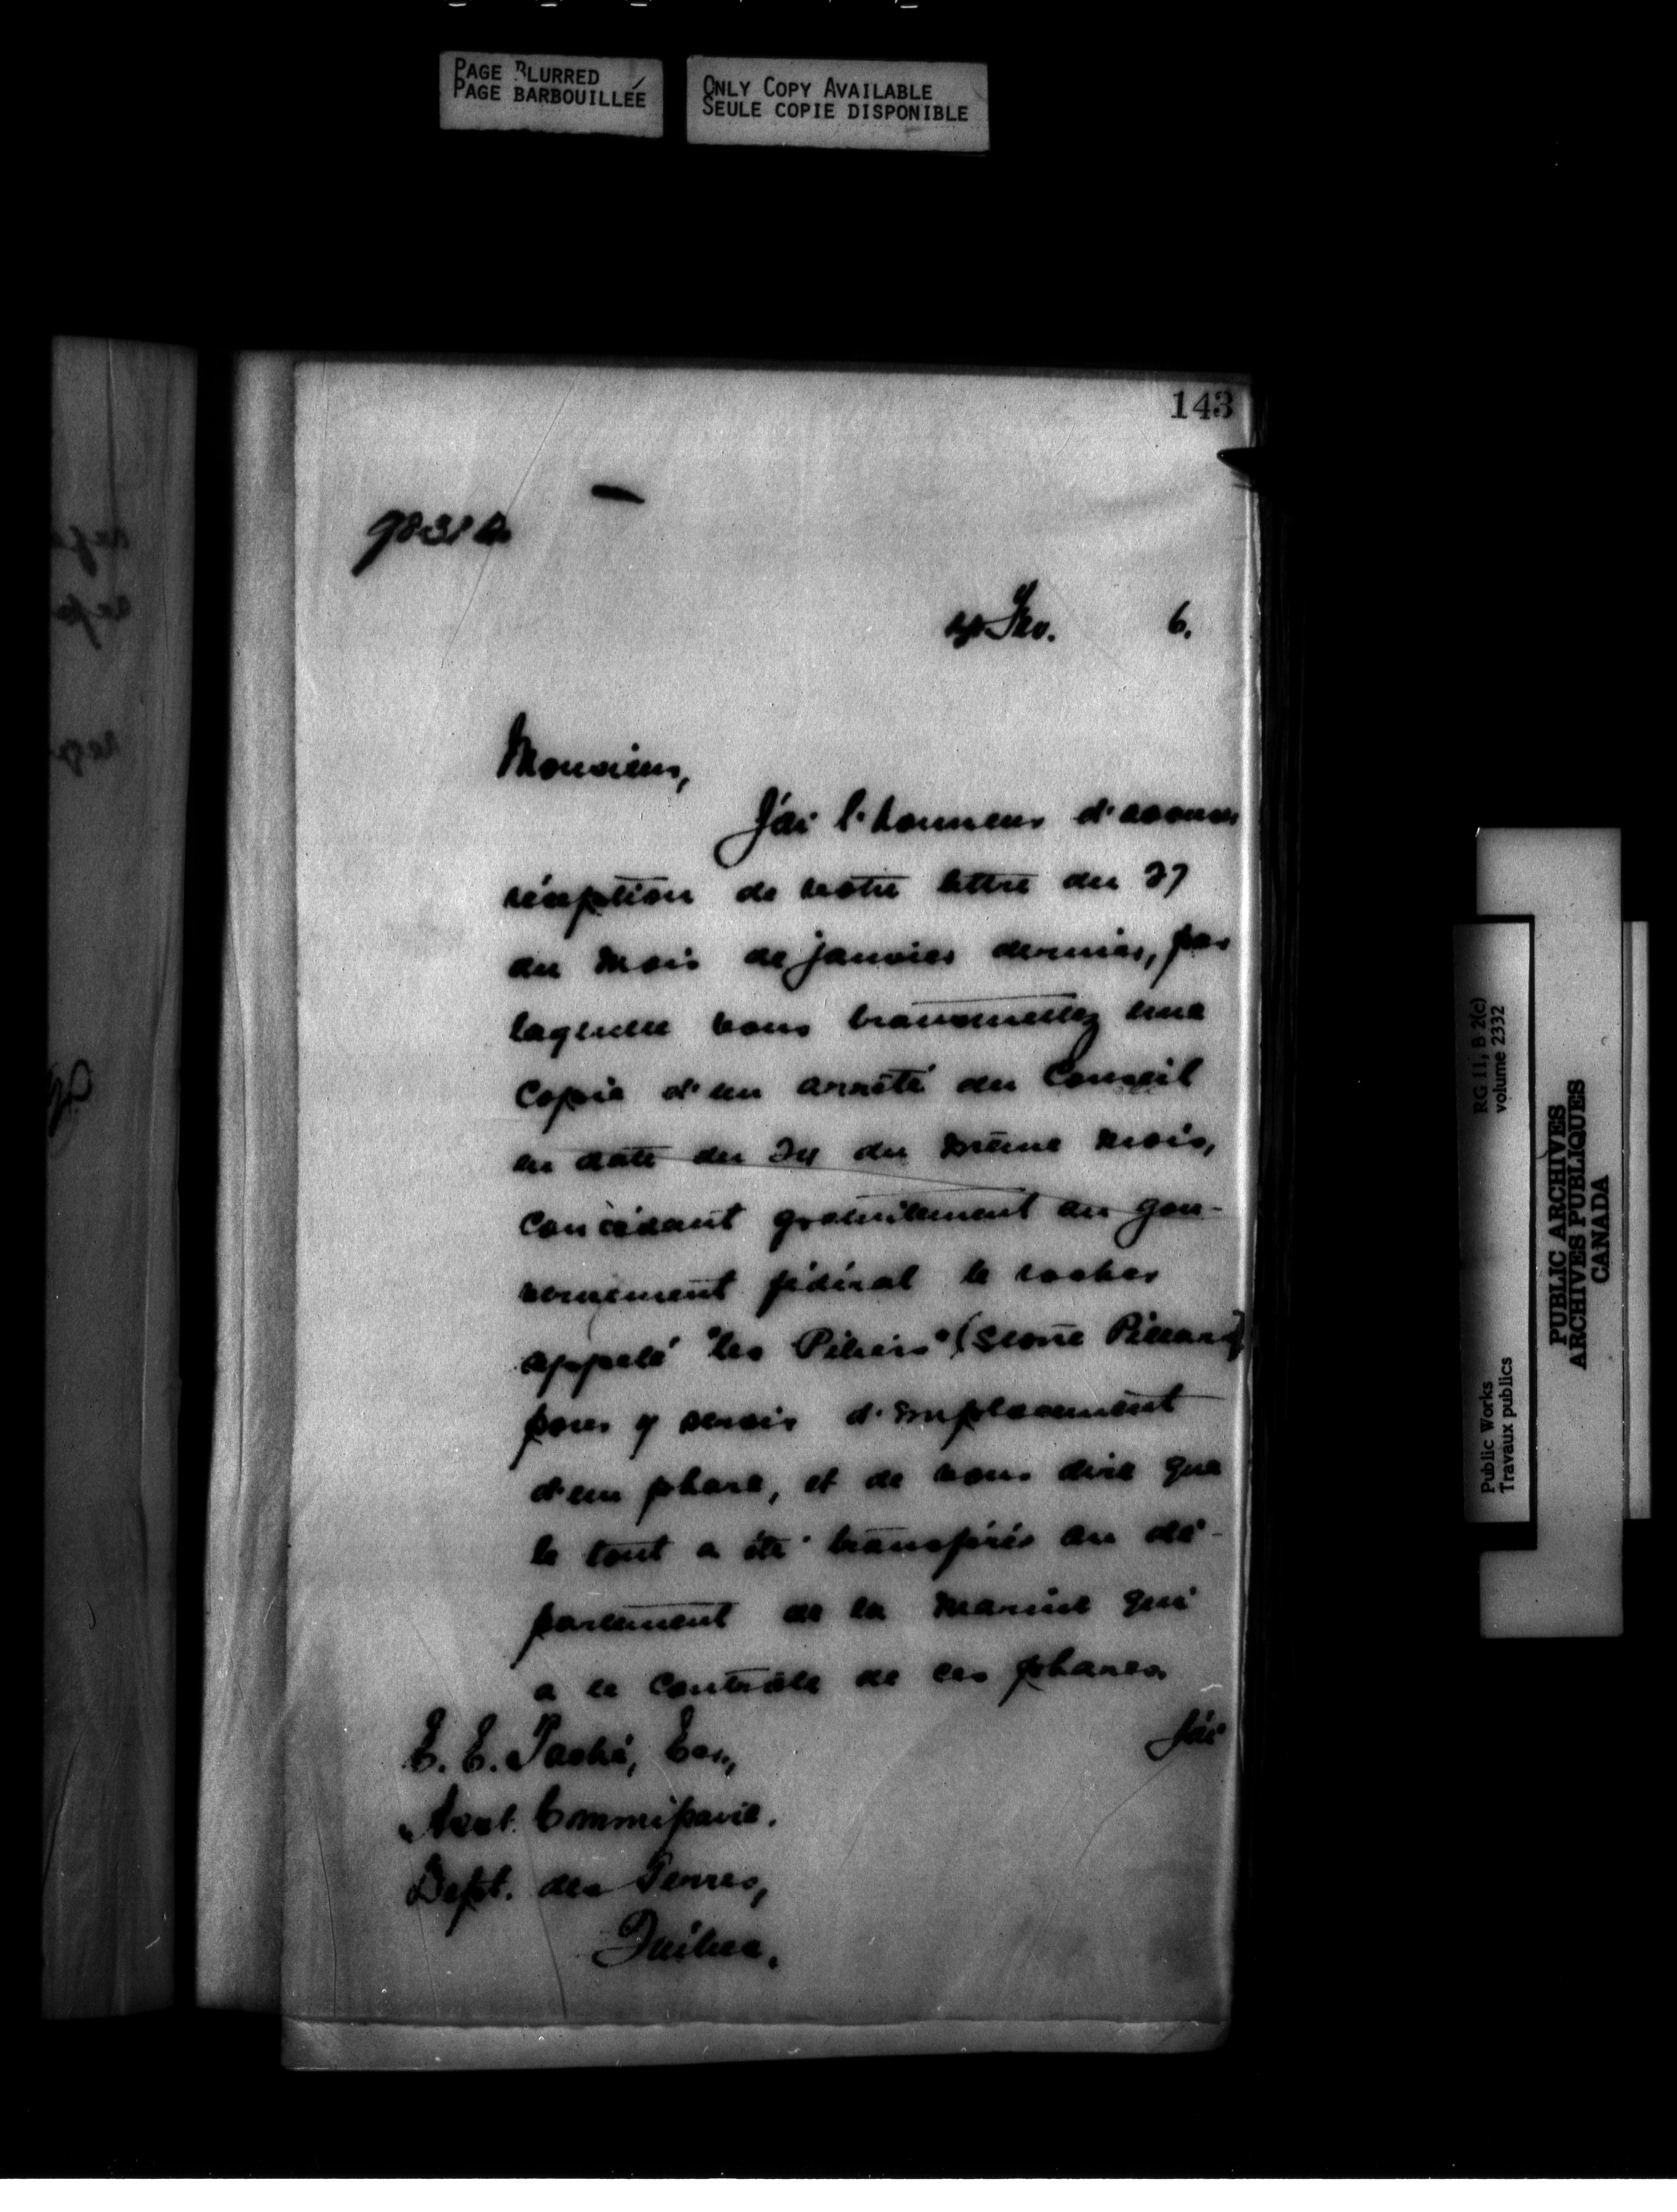 PAGE BLURRED
PAGE BARBOUILLÉE
ONLY COPY AVAILABLE
SEULE COPIE DISPONIBLE
143
Fév. 6.
Monsieur,
J'ai l'honneur d'accuser
réception de votre lettre du 27
du mois de janvier dernier, par
laquelle vous transmettez une
copie d'un arrêté du Conseil
en date du 24 du même mois,
concédant gratuitement au gou-
vernement fédéral le rocher
appelé "les Piliers" (Stone Pillars)
pour y servir d'emplacement
d'un phare, et de vous dire que
le tout a été transféré au dé-
partement de la Marine qui
a le contrôle de ces phares.
J'ai
E. E. Taché, Ecr.,
Asst. Commissaire.
Dépt. des Terres,
Québec.
RG 11, B 2(c)
volume 2332
Public Works
Travaux publics
PUBLIC ARCHIVES
ARCHIVES PUBLIQUES
CANADA